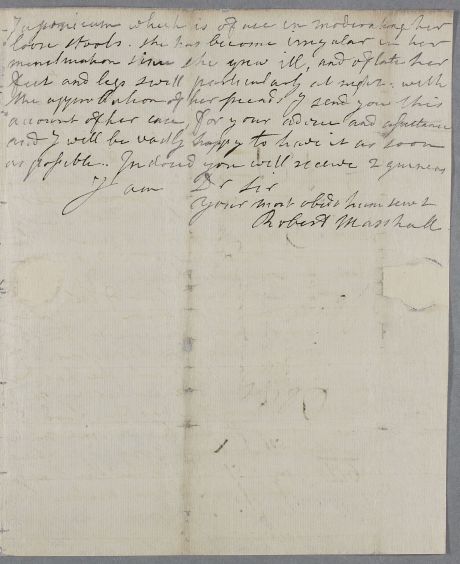 Japonicum which is of use in moderating her
loose stools. she has become irregular in her
menstruation since she grew ill, and of late her
feet and legs swell particularly at night. with
the approbation of her friends I send you this
account of her case for your advice and assistance
and I will be vastly happy to have it as soon
as possible. Inclosed you will receive 2 guineas
I am Dr Sir
your most obedt hum servt
Robert Marshall